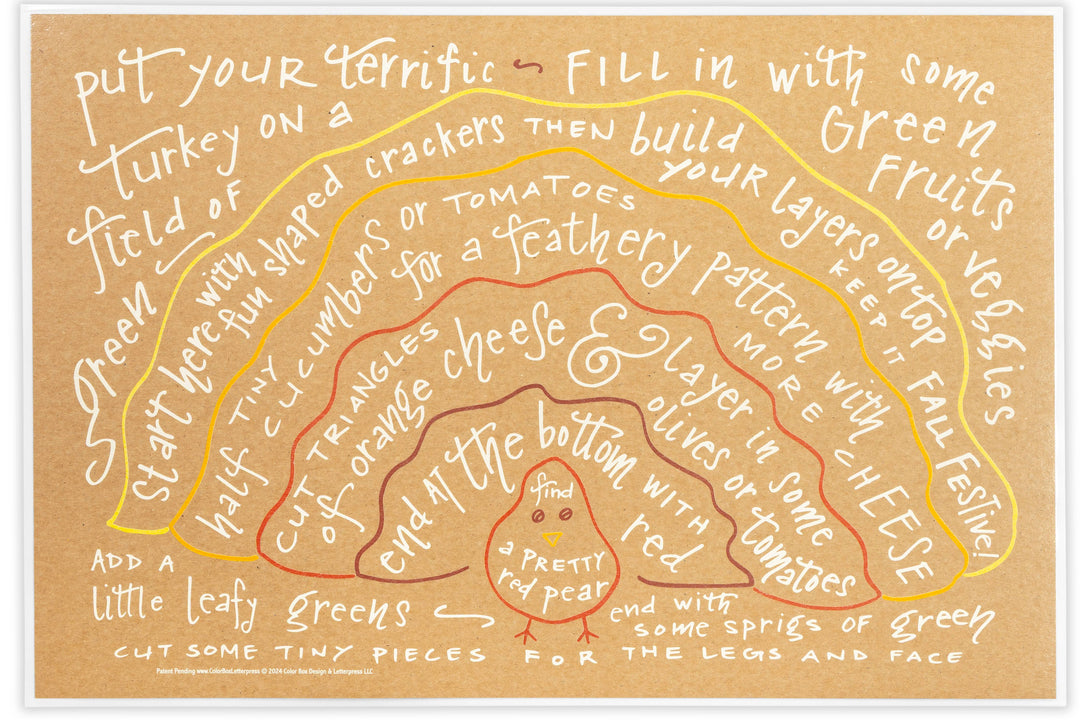 put YOUR terrific ~ FILL in with some
turkey ON a
Green
field OF
Fruits
green
or veggies
start here with fun shaped crackers THEN build YOUR layers ontop
KEEP IT FALL FESTIVE!
half TINY CUCUMBERS or TOMATOES
for a feathery pattern with
MORE CHEESE
CUT TRIANGLES
of orange cheese & layer in some
olives or tomatoes
end AT the bottom WITH
red
find
a PRETTY
red pear
ADD A
little leafy greens
end with
some sprigs OF green
CUT SOME TINY PIECES FOR THE LEGS AND FACE
Patent Pending www.ColorBoxLetterpress © 2024 Color Box Design & Letterpress LLC